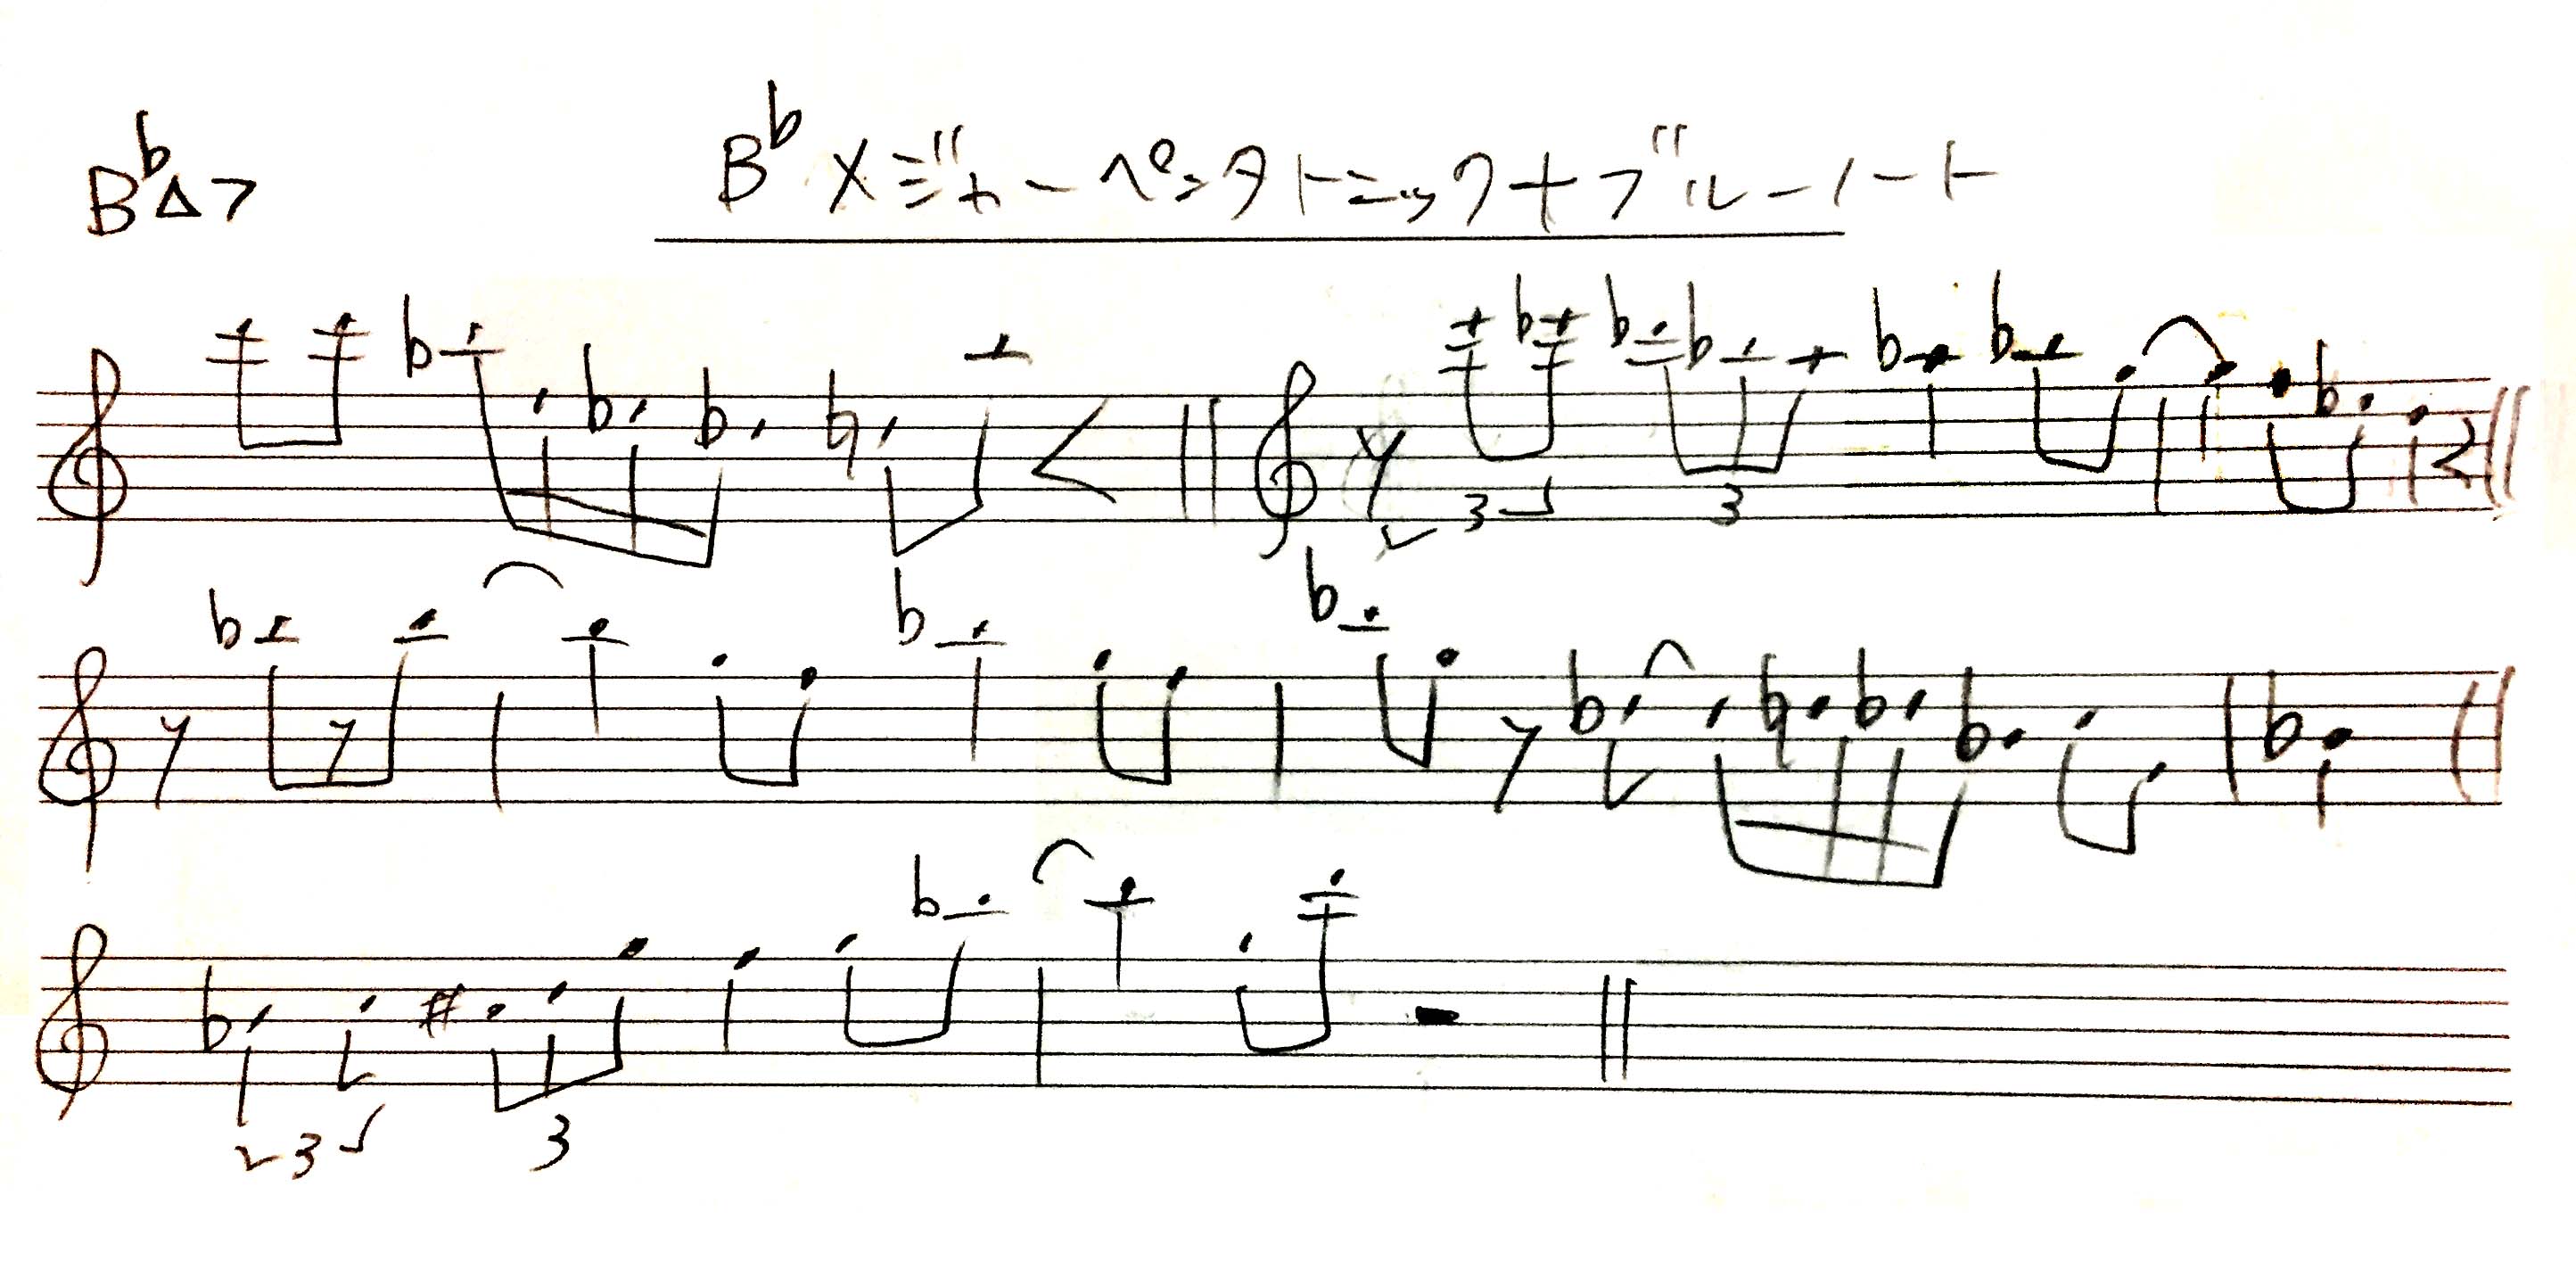 B♭△7
B♭ メジャーペンタトニック+ブルーノート
3 3
3 3